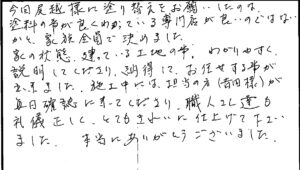 今回反越様に塗り替えをお願いしたのは、
塗料の事が良くわかっている専門店が良いのではない
かと、家族全員で決めました。
家の状態、建っている土地の事、わかりやすく、
説明してくださり、納得して、お任せする事が
出来ました。施工中には、担当の方(吉田様)が
毎日確認に来てくださり、職人さん達も
礼儀正しく、とてもきれいに仕上げて下さい
ました。本当にありがとうございました。